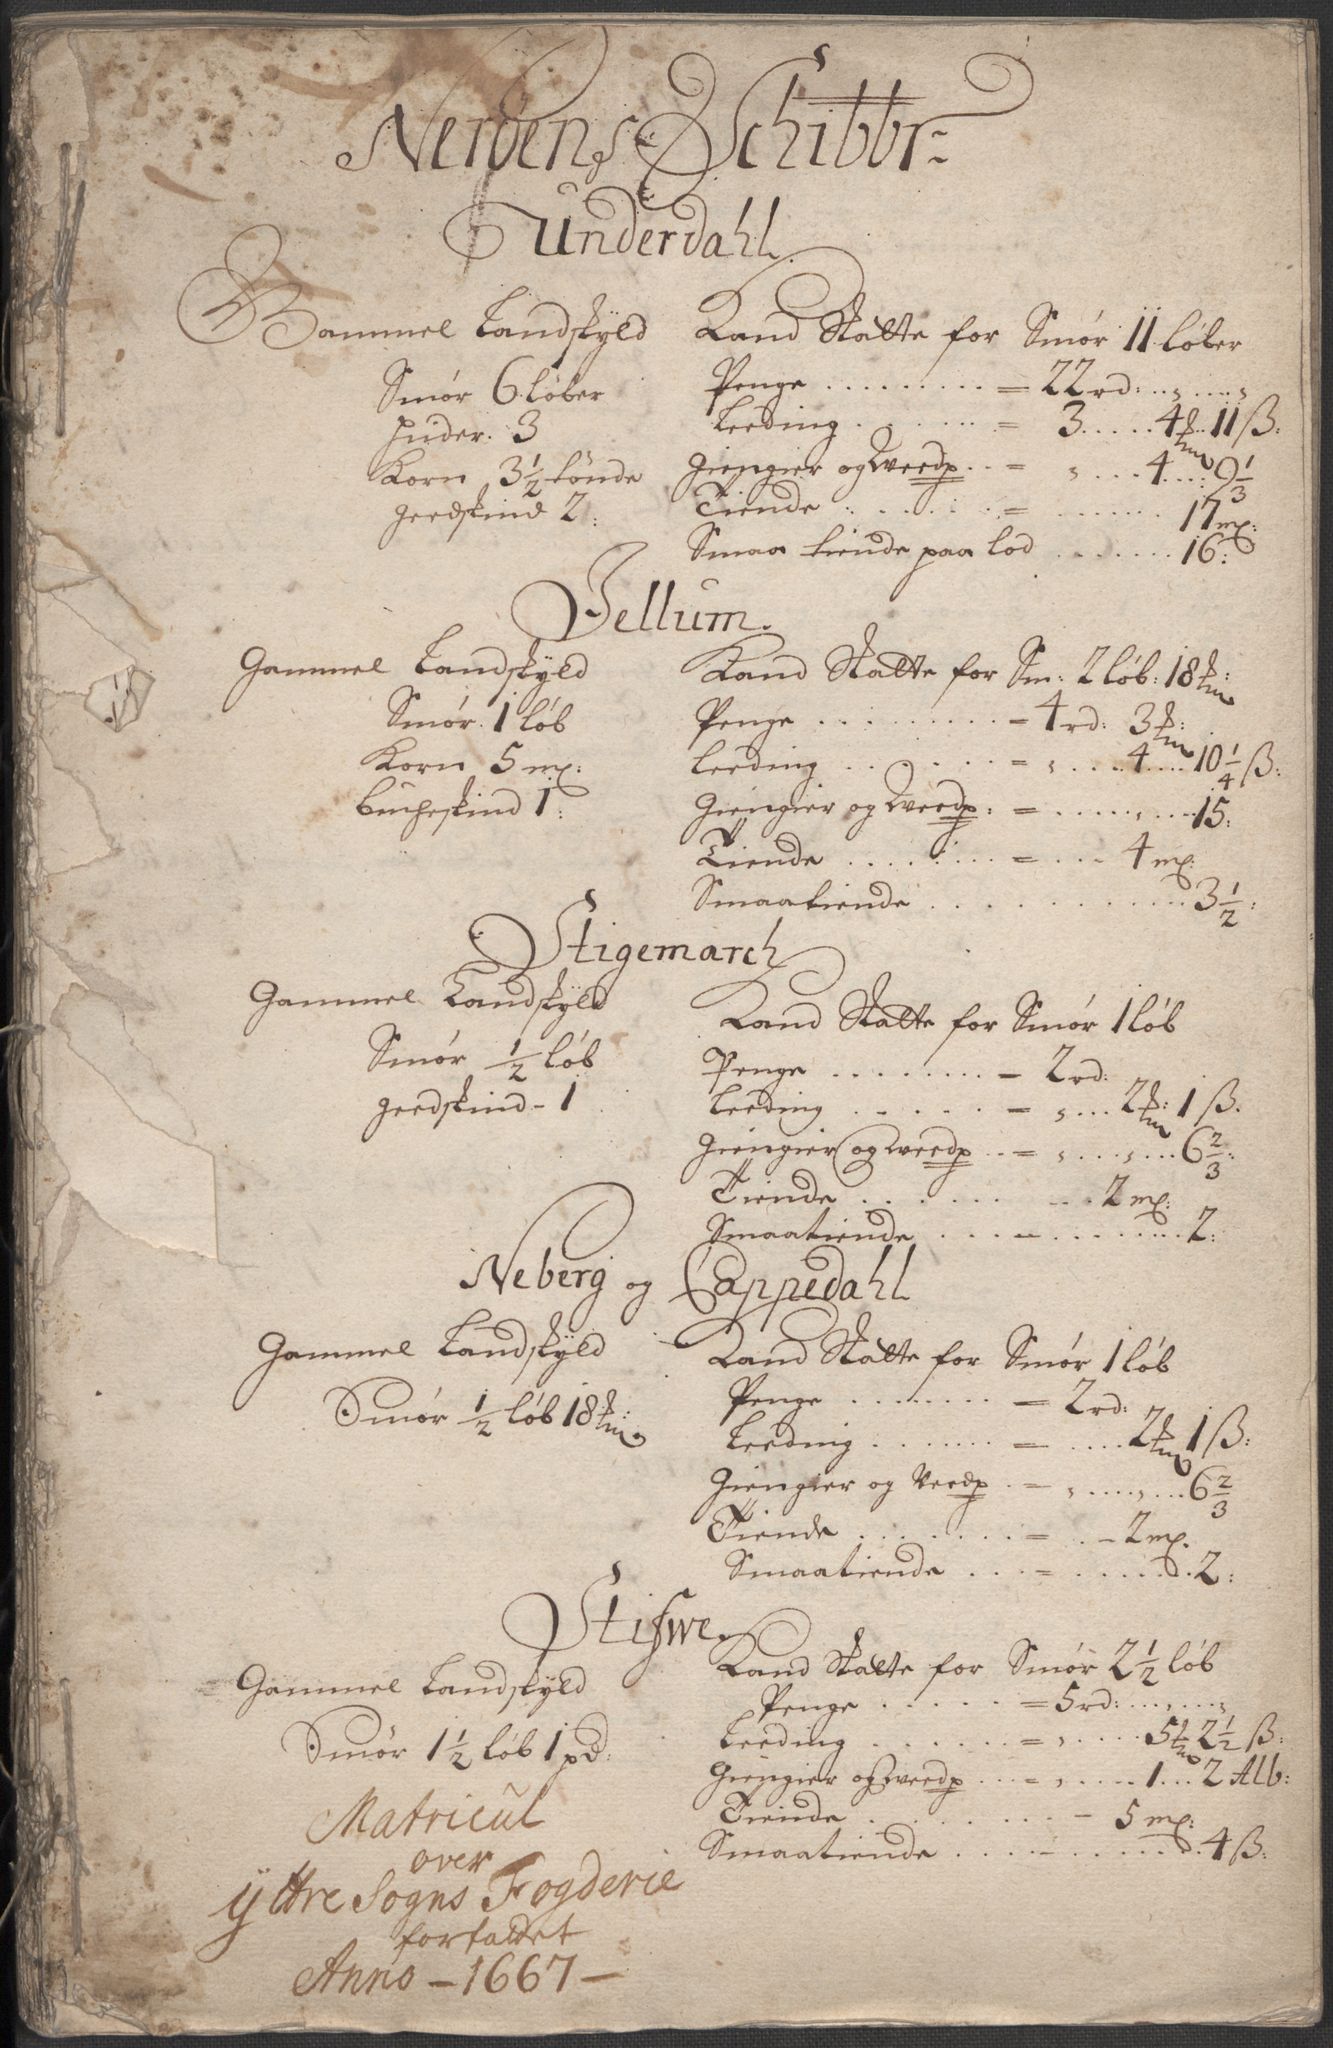 Nerøens Schibbr:
Underdahl
Gammel Landskyld
Smør 6 løber
Huder. 3
Korn 3 1/2 tønde
geedskind 2:
Kand Skatte for Smør 11 løber
Penge . . . . . . . . . = 22 rd: . . , . . . . ,
Leeding . . . . . . . = 3 . . . . . 4 11 ß:
Giengier og Weedp . . = , . . . . 4 . . . . 9 1/3
Tiende . . . . . . . = . . . . . . . . 17 mp:
Smaa tiende paa lod . . . . . . . 16:
Jellum.
Gammel Landskyld
Smør 1 løb
Korn 5 mp:
buckeskind 1:
Kand Skatte for Sm: 2 løb: 18
Penge . . . . . . . . . = 4 rd: 3
Leeding . . . . . . . = , . . . . 4 . . . . 10 1/4 ß:
Giengier og Weedp: . = . . . . . , . . . . 15:
Tiende . . . . . . . . = . . . 4 mp:
Smaatiende . . . . . . . . . . . . . . 3 1/2:
Stigemarch
Gammel Landskyld
Smør 1/2 løb
geedskind - 1
Kand Skatte for Smør 1 løb
Penge . . . . . . . . - 2 rd:
Leeding . . . . . . = , . . . 2 1 ß.
Giengier og weedp . . = , . . . . , . . . 6 2/3:
Tiende . . . . . . . . . . 2 mp:
Smaatiende . . . = . . . . . . . . 2:
Neberg og Cappedahl
Gammel Landskyld
Smør 1/2 løb 18
Kand Skatte for Smør 1 løb
Penge . . . . . . . . = 2 rd:
Leeding . . . . . . . = . . . . 2 1 ß:
Giengier og Weedp . . = , . . . . , . . . 6 2/3
Tiende . . . . . . . = . . - 2 mp.
Smaatiende . . . = . . . . . . . 2:
Stifwe.
Gammel Landskyld
Smør 1 1/2 løb 1 pd:
Kand Skatte for Smør 2 1/2 løb
Penge . . . . . = 5 rd: . . . , . . . ,
Leeding . . . . . . . = , . . . . 5 2 1/2 ß:
Giengier og weedp . . . = , . . . . 1 . . . 2 Alb:
Tiende . . . . . . . . - 5 mp:
Smaatiende . . . . - . . . . . . . 4 ß:
Matricul
over
ÿttre Sogns Fogderie
forfattet
Anno - 1667 -